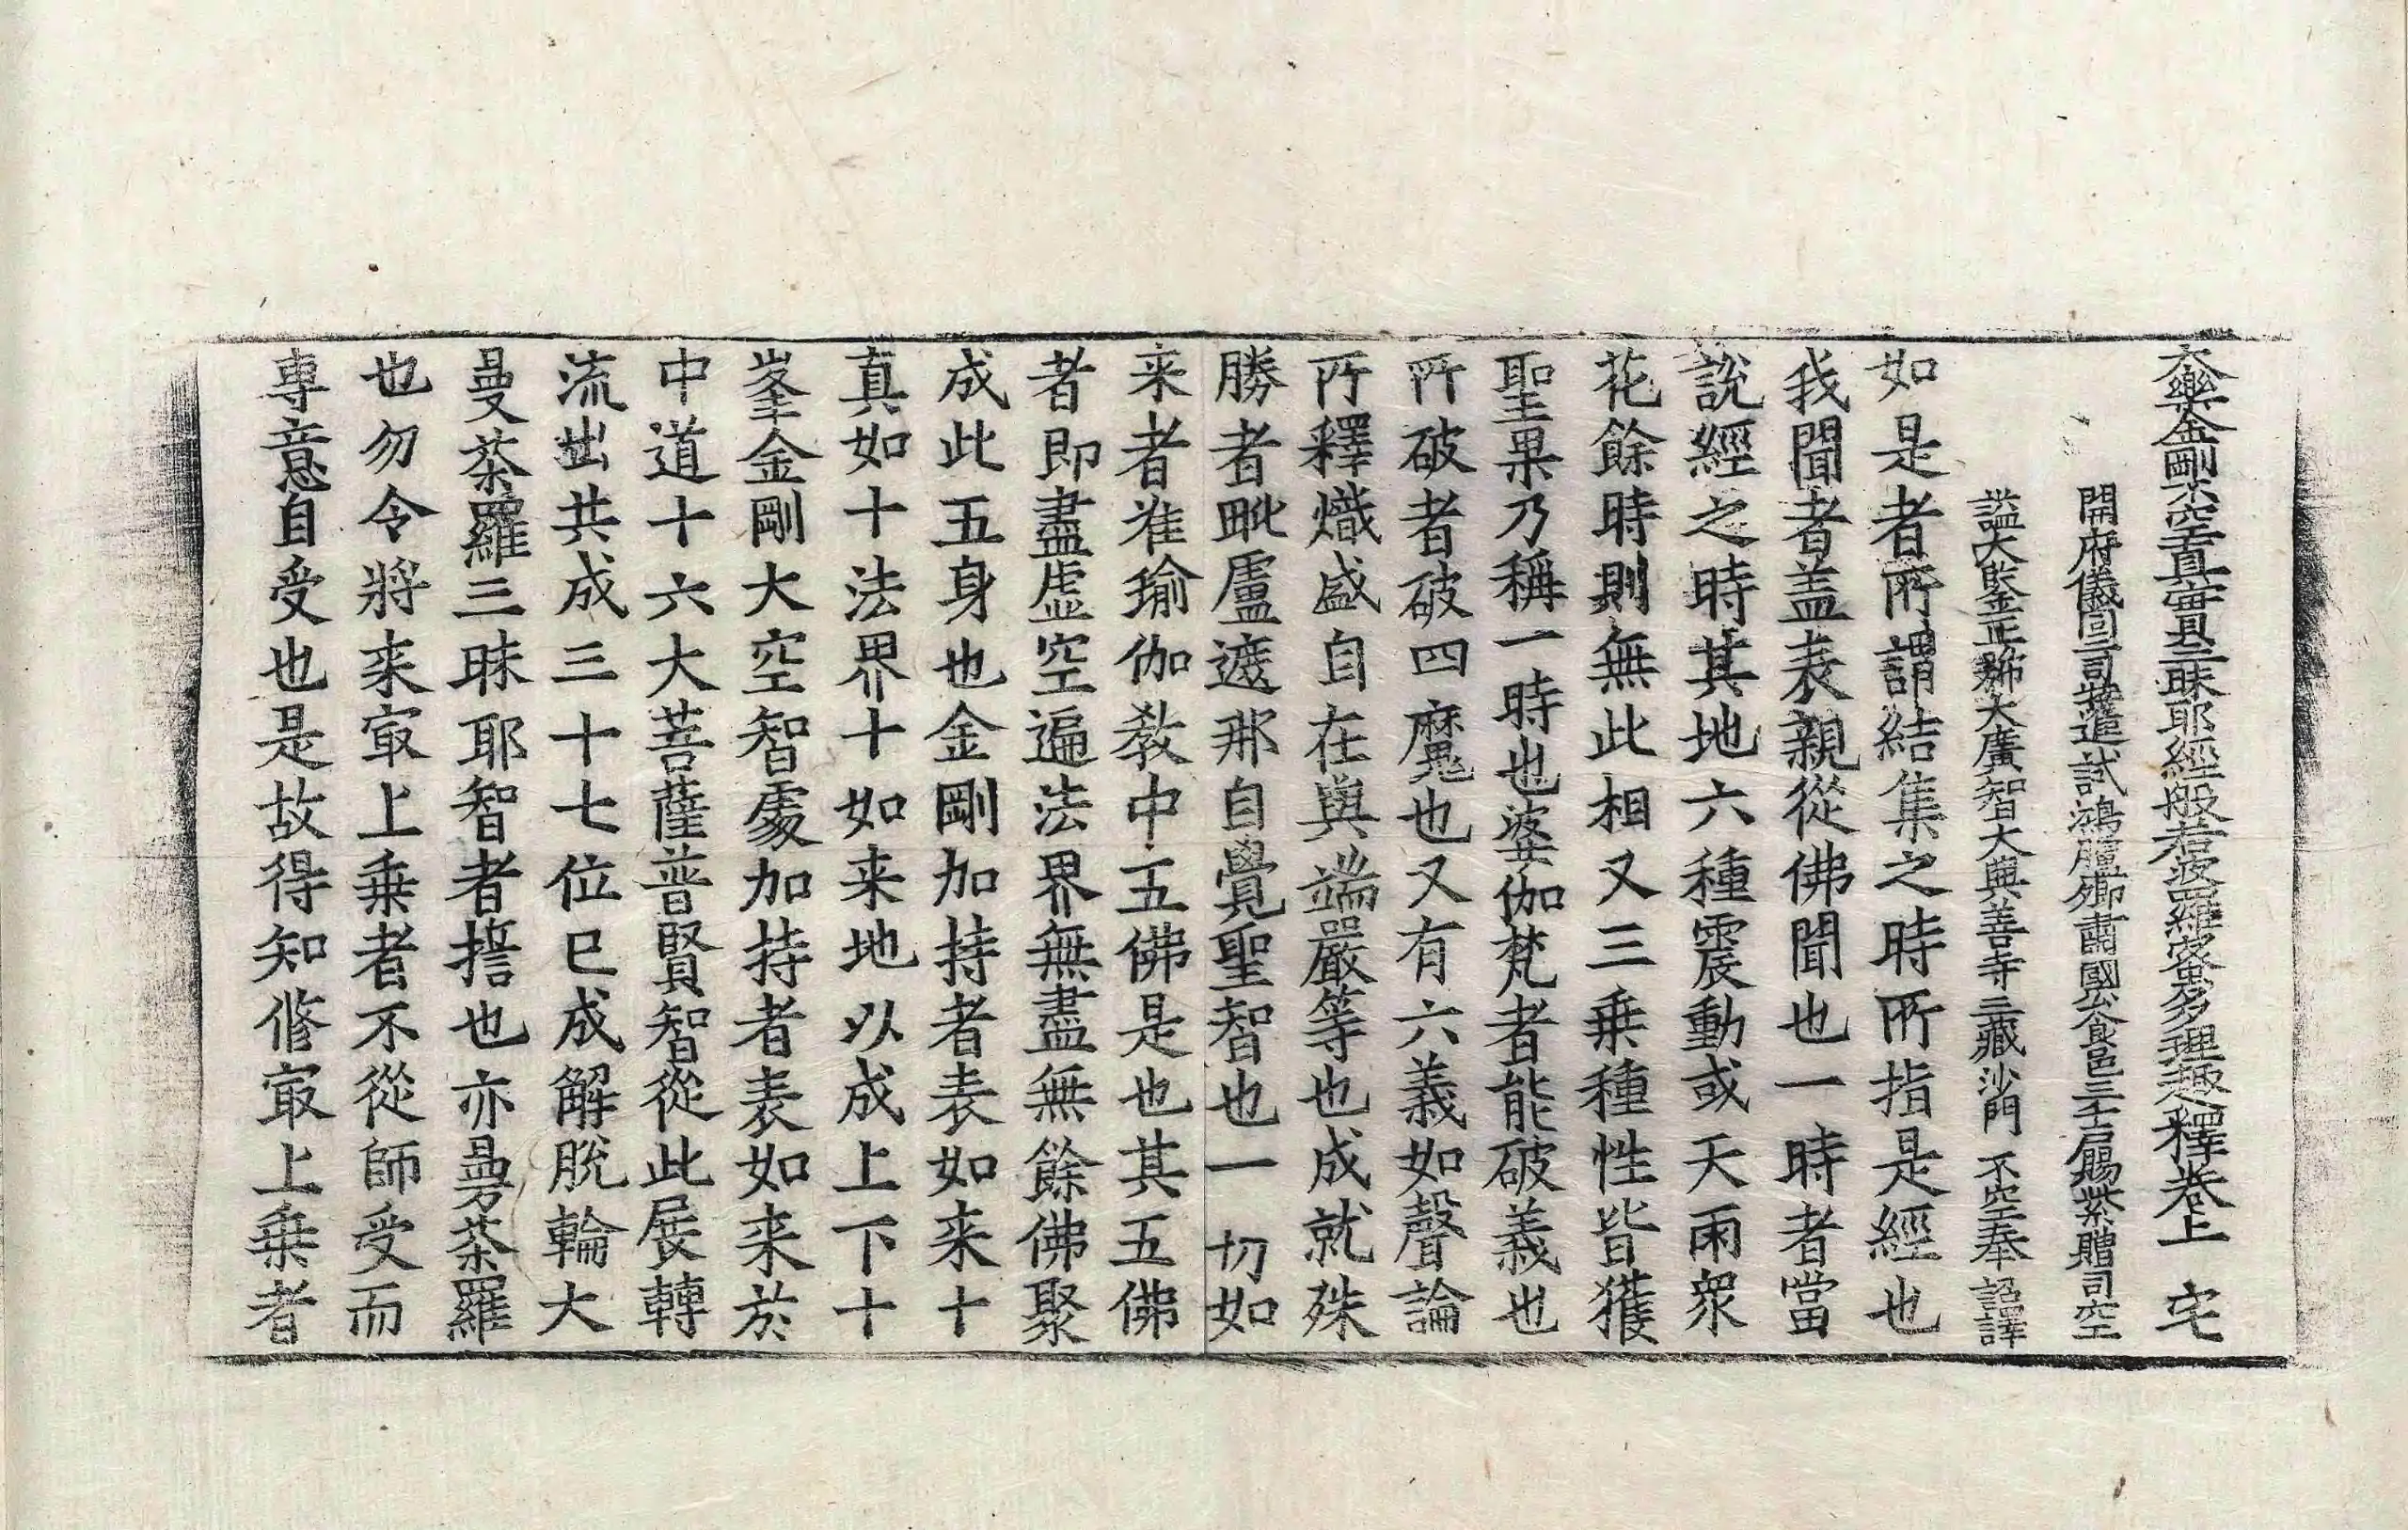 大樂金剛不空真實三昧耶經般若波羅蜜多理趣釋卷上 宅
開府儀同三司特進試鴻臚卿肅國公食邑三千戶賜紫贈司空
謚大鑒正號大廣智大興善寺三藏沙門 不空奉 詔譯
如是者所謂結集之時所指是經也
我聞者盖表親從佛聞也一時者當
說經之時其地六種震動或天雨衆
花餘時則無此相又三乗種性皆獲
聖果乃稱一時也婆伽梵者能破義也
所破者破四魔也又有六義如聲論
所釋熾盛自在與端嚴等也成就殊
勝者毗盧遮那自覺聖智也一切如
来者准瑜伽教中五佛是也其五佛
者即盡虛空遍法界無盡無餘佛聚
成此五身也金剛加持者表如来十
真如十法界十如来地以成上下十
峯金剛大空智處加持者表如来於
中道十六大菩薩普賢智從此展轉
流出共成三十七位已成解脫輪大
曼茶羅三昧耶智者擔也亦曼茶羅
也勿令將来㝡上乗者不從師受而
專意自受也是故得知脩㝡上乗者